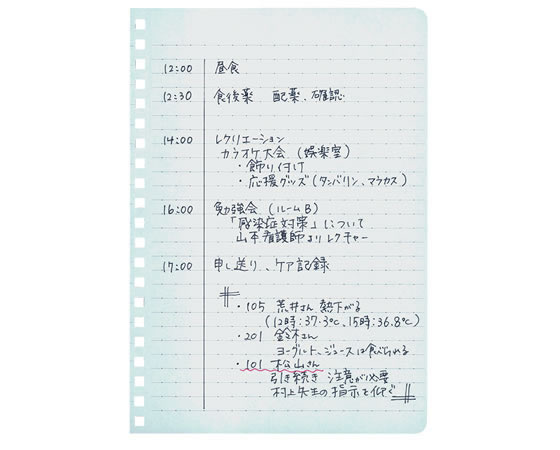 12:00 昼食
12:30 食後薬 配薬、確認
14:00 レクリエーション
カラオケ大会(娯楽室)
・飾り付け
・応援グッズ(タンバリン、マラカス)
16:00 勉強会(ルームB)
「感染症対策」について
山本看護師よりレクチャー
17:00 申し送り、ケア記録
・105 荒井さん 熱下がる
(12時:37.3℃、15時:36.8℃)
・201 鈴木さん
ヨーグルト、ジュースは食べられる
・101 松山さん
引き続き 注意が必要
村上先生の指示を仰ぐ